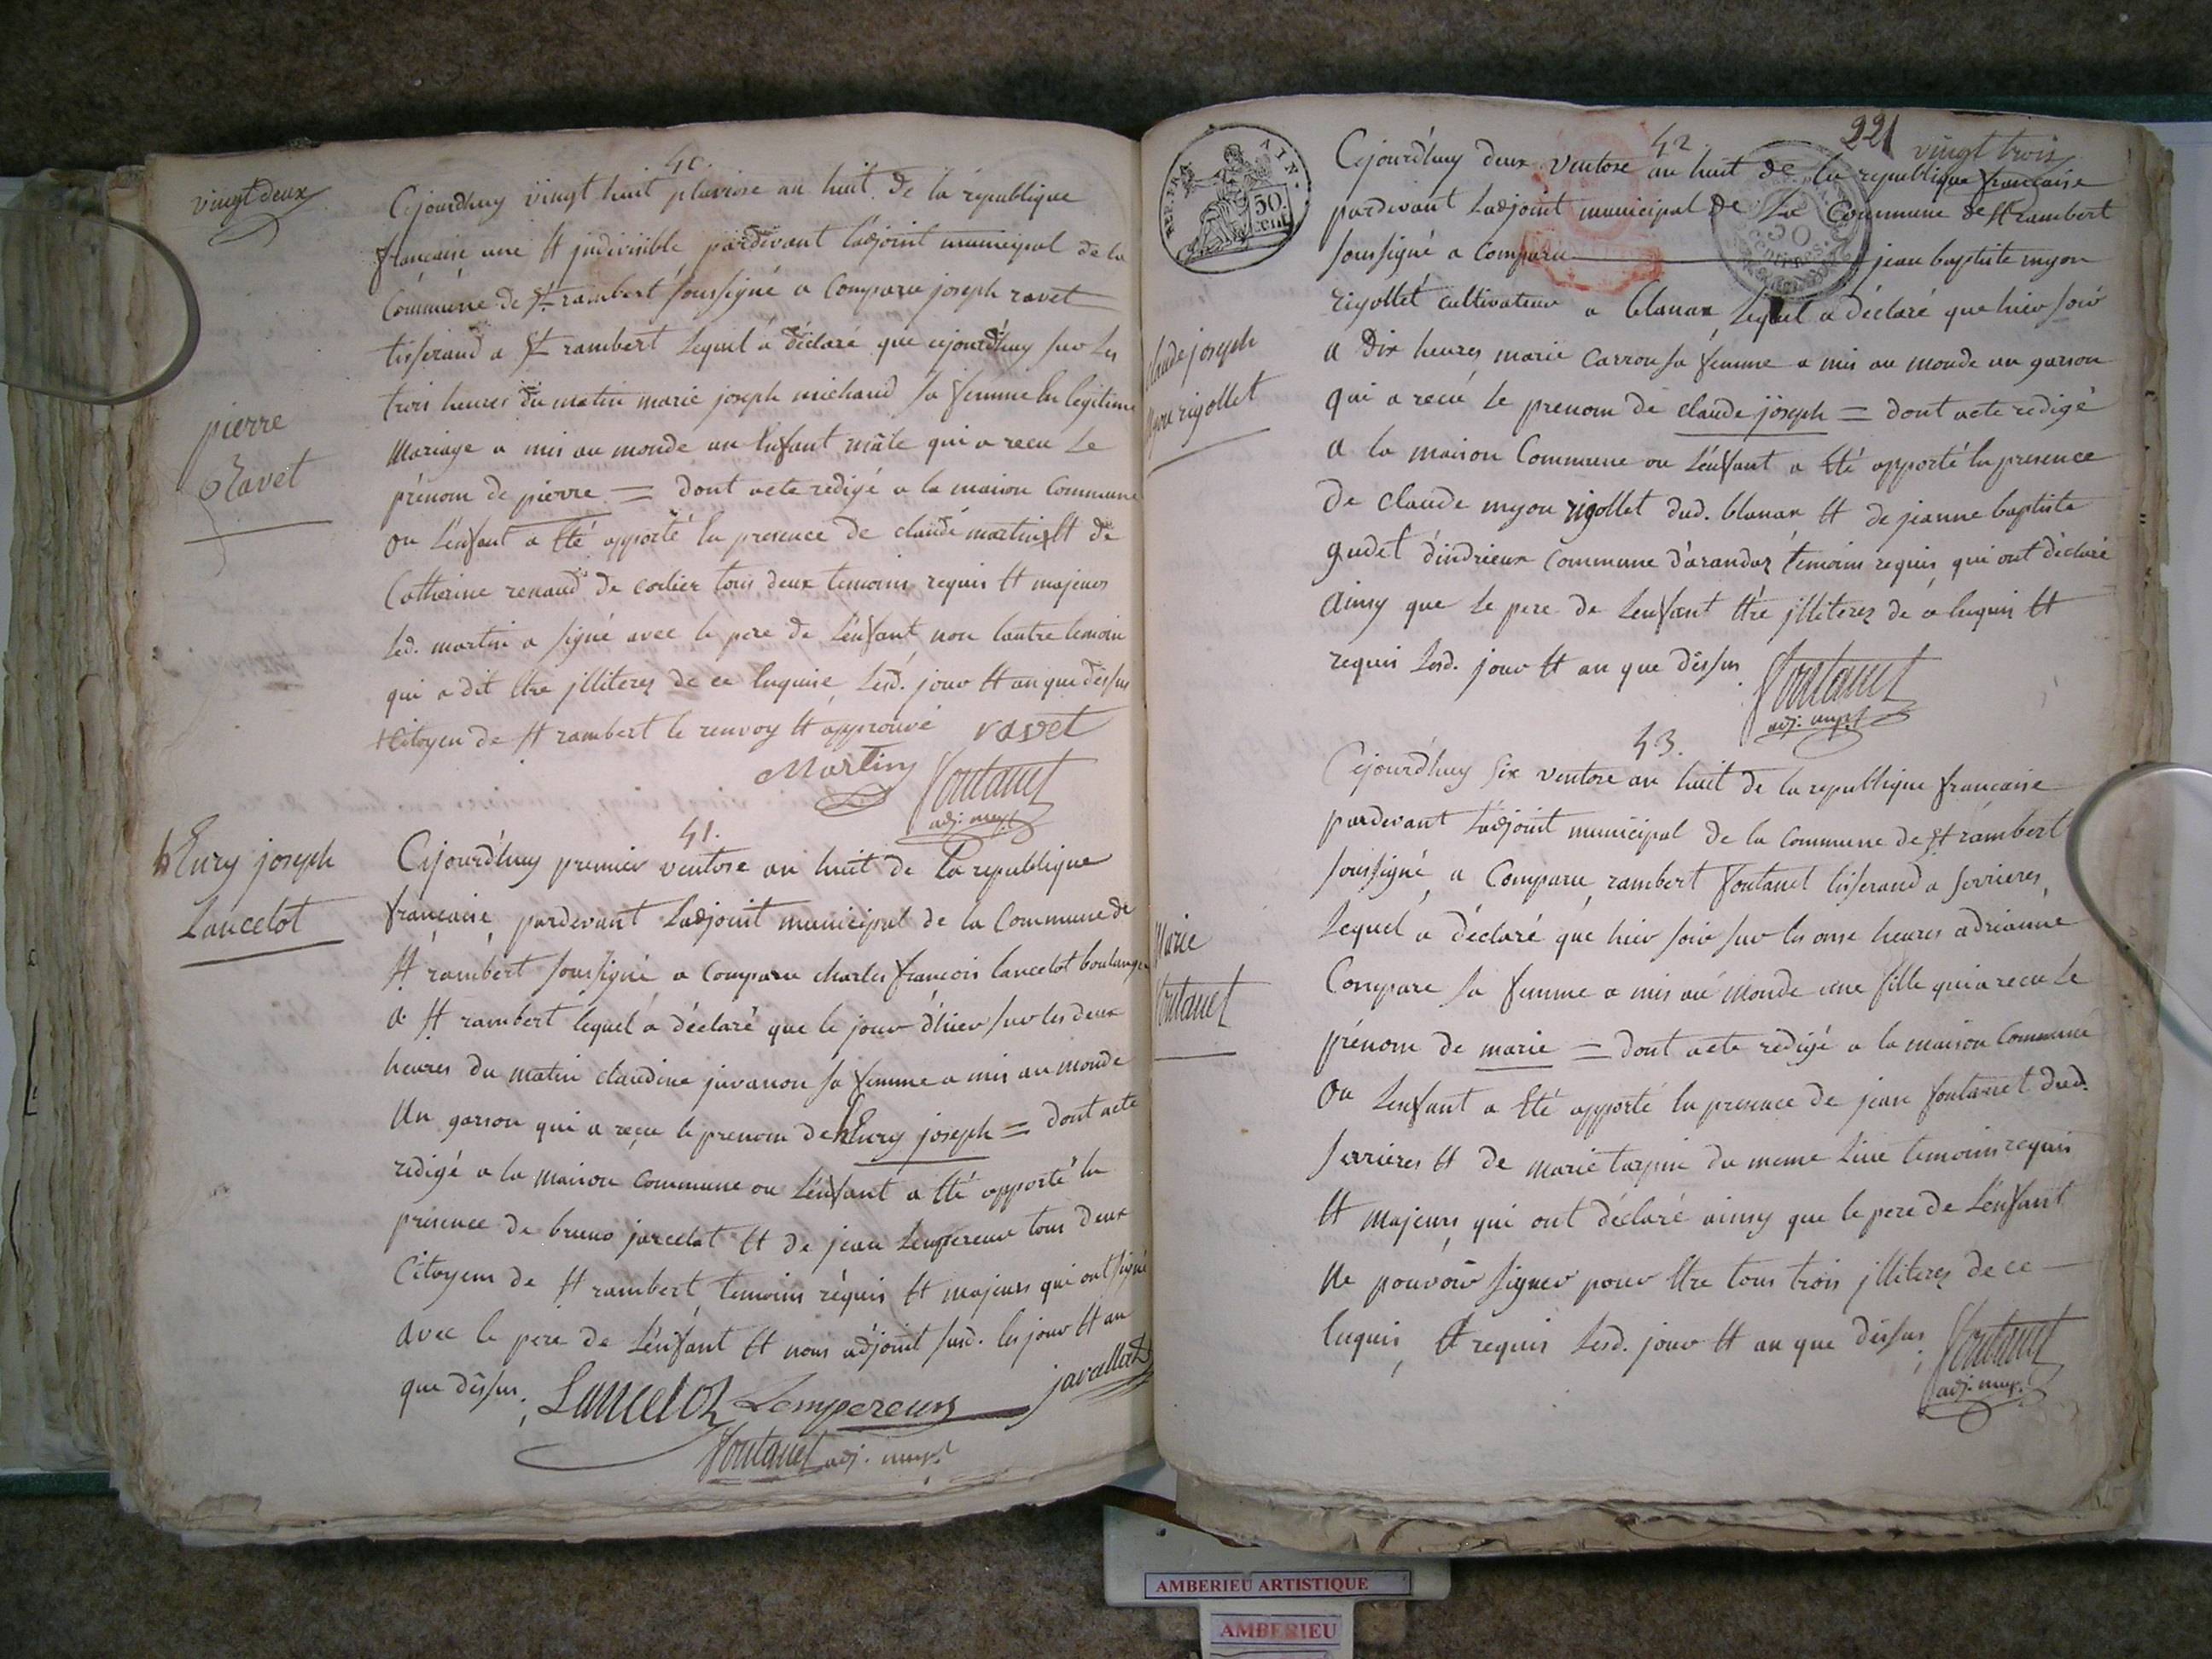 vingt deux
40.
Cejourdhuy vingt huit pluviose an huit de la republique
francaise une et jndivisible pardevant ladjoint municipal de la
Commune de St rambert soussigné a Comparu joseph ravet
tisserand a St rambert Lequel a déclaré que cejourdhuy sur Les
trois heures du matin marie joseph michaud sa femme En legitime
Mariage a mis au monde un Enfant mâle qui a recu Le
prénom de pierre = dont acte redigé a la maison Commune
ou L'enfant a Eté apporté En presence de claude martin + Et de
Catherine renaud de corlier tous deux temoins requis Et majeurs
led. martin a signé avec le pere de L'enfant non lautre temoin
qui a dit Etre jlliterez de ce Enquise Lesd. jour Et an que dessus
+ Citoyen de St rambert le renvoy Et approuvé ravet
Martin Fontanet
adj. mup.l
pierre
Ravet
41.
Cejourd'huy premier ventose an huit de La republique
francaise, pardevant Ladjoint municipal de la Commune de
St rambert soussigné a Comparu charles francois lancelot boulanger
a St rambert lequel a déclaré que le jour d'hier sur les deux
heures du matin claudine juvanon sa femme a mis au monde
Un garson qui a reçu le prenom de hEnry joseph = dont acte
redigé a la maison Commune ou L'enfant a Eté apporté En
presence de bruno Et de jean Lempereur tous deux
Citoyens de St rambert, temoins réquis Et majeurs qui ont signé
avec le pere de L'enfant Et nous adjoint susd. les jour Et an
que dessus; Lancelot Lempereur
Fontanet adj. mup.l
hEnry joseph
Lancelot
221
vingt trois
42.
REP. FRA AIN.
50. cent
50
CENTIMES
Cejourd'huy deux ventose an huit de la republique francaise
pardevant Ladjoint municipal de La Commune de St rambert
soussigné a Comparu jean baptiste myon
rigollet cultivateur a blanax, Lequel a déclaré que hier soir
a Dix heures, marie Carron sa femme a mis au monde un garson
qui a recu le prenom de claude joseph = dont acte redigé
a la maison Commune ou L'enfant a Eté apporté En presence
de claude myon rigollet dud. blanax Et de jeanne baptiste
gudet d'indrieux Commune d'arandaz temoins requis, qui ont déclaré
ainsy que le pere de L'enfant Etre jlliterez de ce Enquis Et
requis Lesd. jour Et an que dessus Fontanet
adj. mup.l
claude joseph
Myon rigollet
43.
Cejourd'huy six ventose an huit de la republique francaise
pardevant Ladjoint municipal de la Commune de St rambert
soussigné, a Comparu rambert fontanet tisserand a serrieres,
Lequel a déclaré que hier soir sur les onse heures adrianne
Compare sa femme a mis au monde une fille qui a recu Le
prénom de marie = dont acte redigé a la maison Commune
ou L'enfant a Eté apporté En presence de jean fontanet dud.
serrieres Et de marie tarpin du meme Lieu temoins requis
Et majeurs, qui ont déclaré ainsy que le pere de L'enfant
Ne pouvoir signer pour Etre tous trois jlliterez de ce
Enquis, Et requis Lesd. jour Et an que dessus; Fontanet
adj. mup.l
Marie
fontanet
AMBERIEU ARTISTIQUE
AMBERIEU